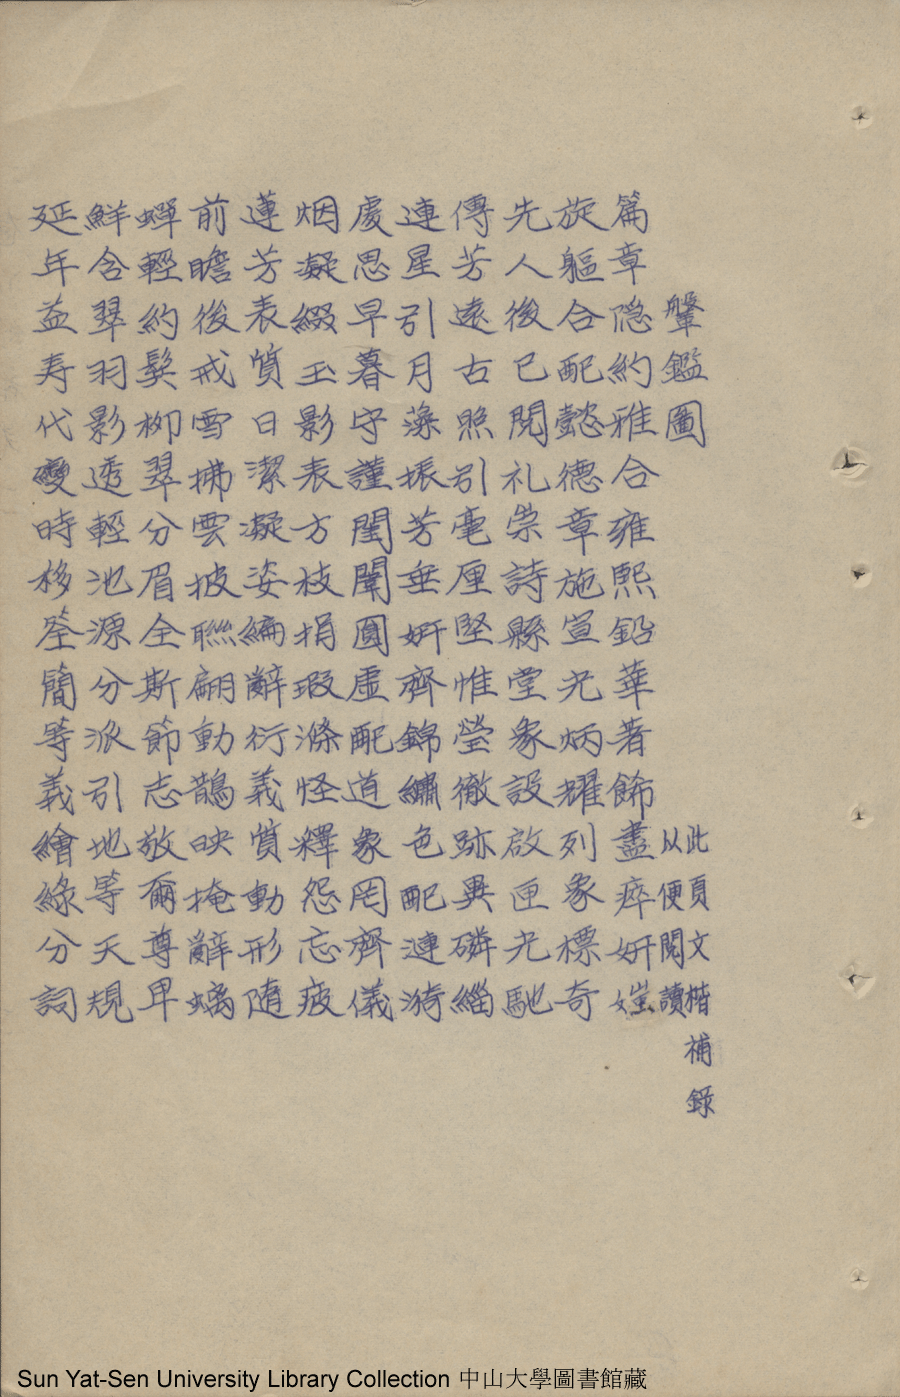 鞶鑑圖
此頁文楷補錄
以便閱讀
篇章隐約雅合雍熙鉛華著飾盡瘁妍媸
旋軀合配懿德章施宣光炳耀列象標奇
先人後已閱礼崇詩縣堂象設啟匣光馳
傳芳遠古照引毫厘堅惟瑩徹跡異磷緇
連星引月藻振芳垂妍齊錦繡色配漣漪
處思早暮守謹閨闈圓虛配道象罔齊儀
烟凝綴玉影表方枝捐瑕滌怪釋怨忘疲
蓮芳表質日潔凝姿編辭衍義質動形隨
前瞻後戒雪拂雲披聯翩動鵲映掩辭螭
蟬輕約鬓柳翠分眉全斯節志敬爾尊卑
鮮含翠羽影透輕池源分派引地等天規
延年益寿代變時移筌簡等義繪綠分詞
Sun Yat-Sen University Library Collection 中山大學圖書館藏